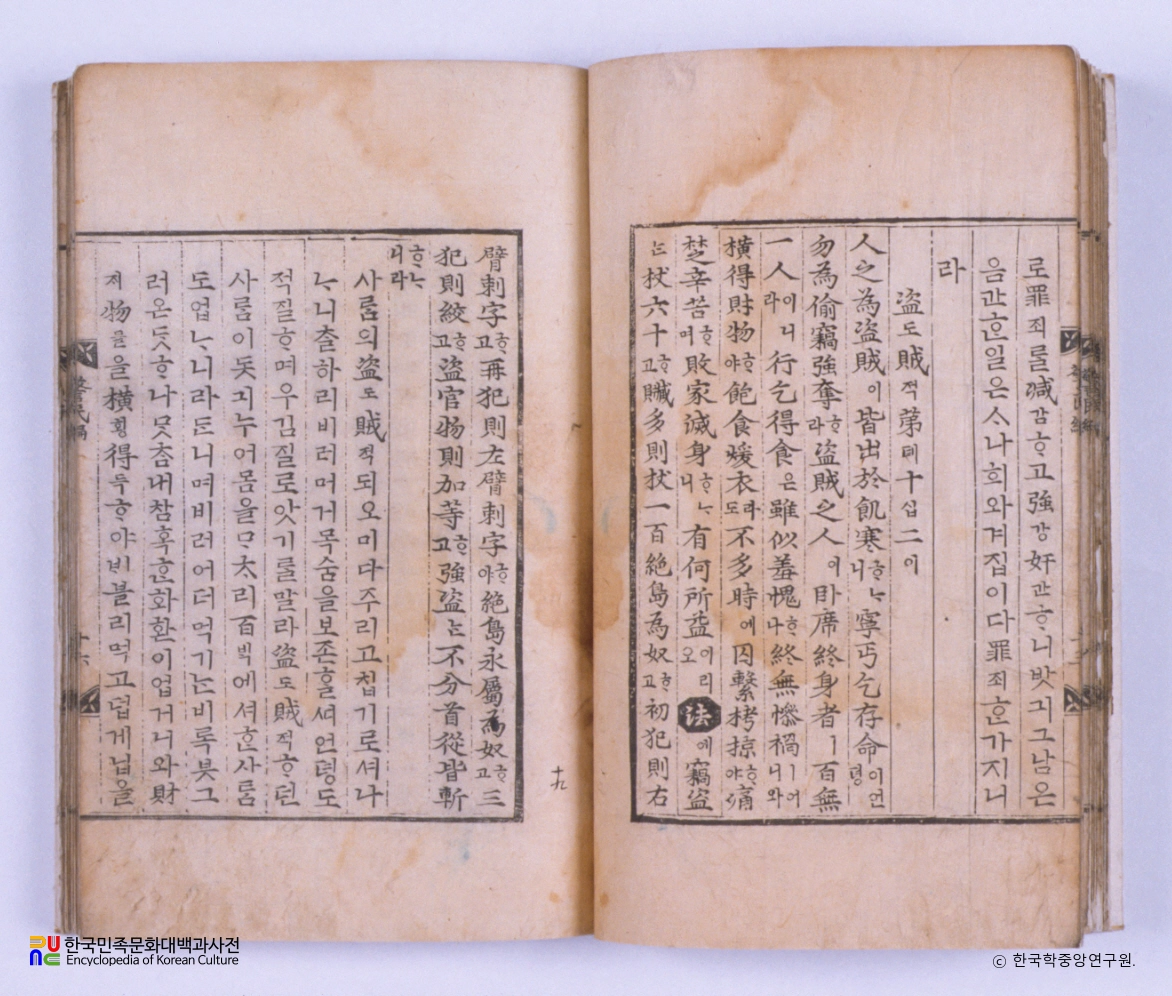 로罪죄를減감ᄒᆞ고强강奸간ᄒᆞ니밧긔그남은
음간ᄒᆞᆫ일은ᄉᆞ나희와겨집이다罪죄ᄒᆞᆫ가지니
라
盜도賊적第뎨十십二이
人之為盜賊이皆出於飢寒ᄒᆞᄂᆞ니寧丐乞存命이언뎡
勿為偷竊強奪ᄒᆞ라盜賊之人이卧席終身者ㅣ百無
一人이니라行乞得食은雖似羞愧ᄒᆞ나終無慘禍ㅣ어니와
橫得財物ᄒᆞ야飽食煖衣라도不多時에囚繫栲掠ᄒᆞ야痛
楚辛苦ᄒᆞ며敗家滅身ᄒᆞᄂᆞ니有何所益이리오法에竊盜
ᄂᆞᆫ杖六十ᄒᆞ고贓多則杖一百絶島為奴ᄒᆞ고初犯則右
臂刺字ᄒᆞ고再犯則左臂刺字ᄒᆞ야絶島永屬為奴ᄒᆞ고三
犯則絞ᄒᆞ고盜官物則加等ᄒᆞ고強盜ᄂᆞᆫ不分首從皆斬
ᄒᆞᄂᆞ니라
사ᄅᆞᆷ의盜도賊적되오미다주리고칩기로셔나
ᄂᆞ니ᄎᆞᆯ하리비러머거목숨을보존ᄒᆞᆯ셔언뎡도
적질ᄒᆞ며우김질로앗기ᄅᆞᆯ말라盜도賊적ᄒᆞ던
사ᄅᆞᆷ이돗긔누어몸을ᄆᆞᄎᆞ리百ᄇᆡᆨ에셔ᄒᆞᆫ사ᄅᆞᆷ
도업ᄂᆞ니라ᄃᆞᆫ니며비러어더먹기ᄂᆞᆫ비록븟그
러온ᄃᆞᆺᄒᆞ나ᄆᆞᆺᄎᆞᆷ내참혹ᄒᆞᆫ화환이업거니와財
ᄌᆡ物믈을橫횡得득ᄒᆞ야ᄇᆡ블리먹고덥게닙을
警民編
十九
한국민족문화대백과사전
Encyclopedia of Korean Culture
ⓒ 한국학중앙연구원.